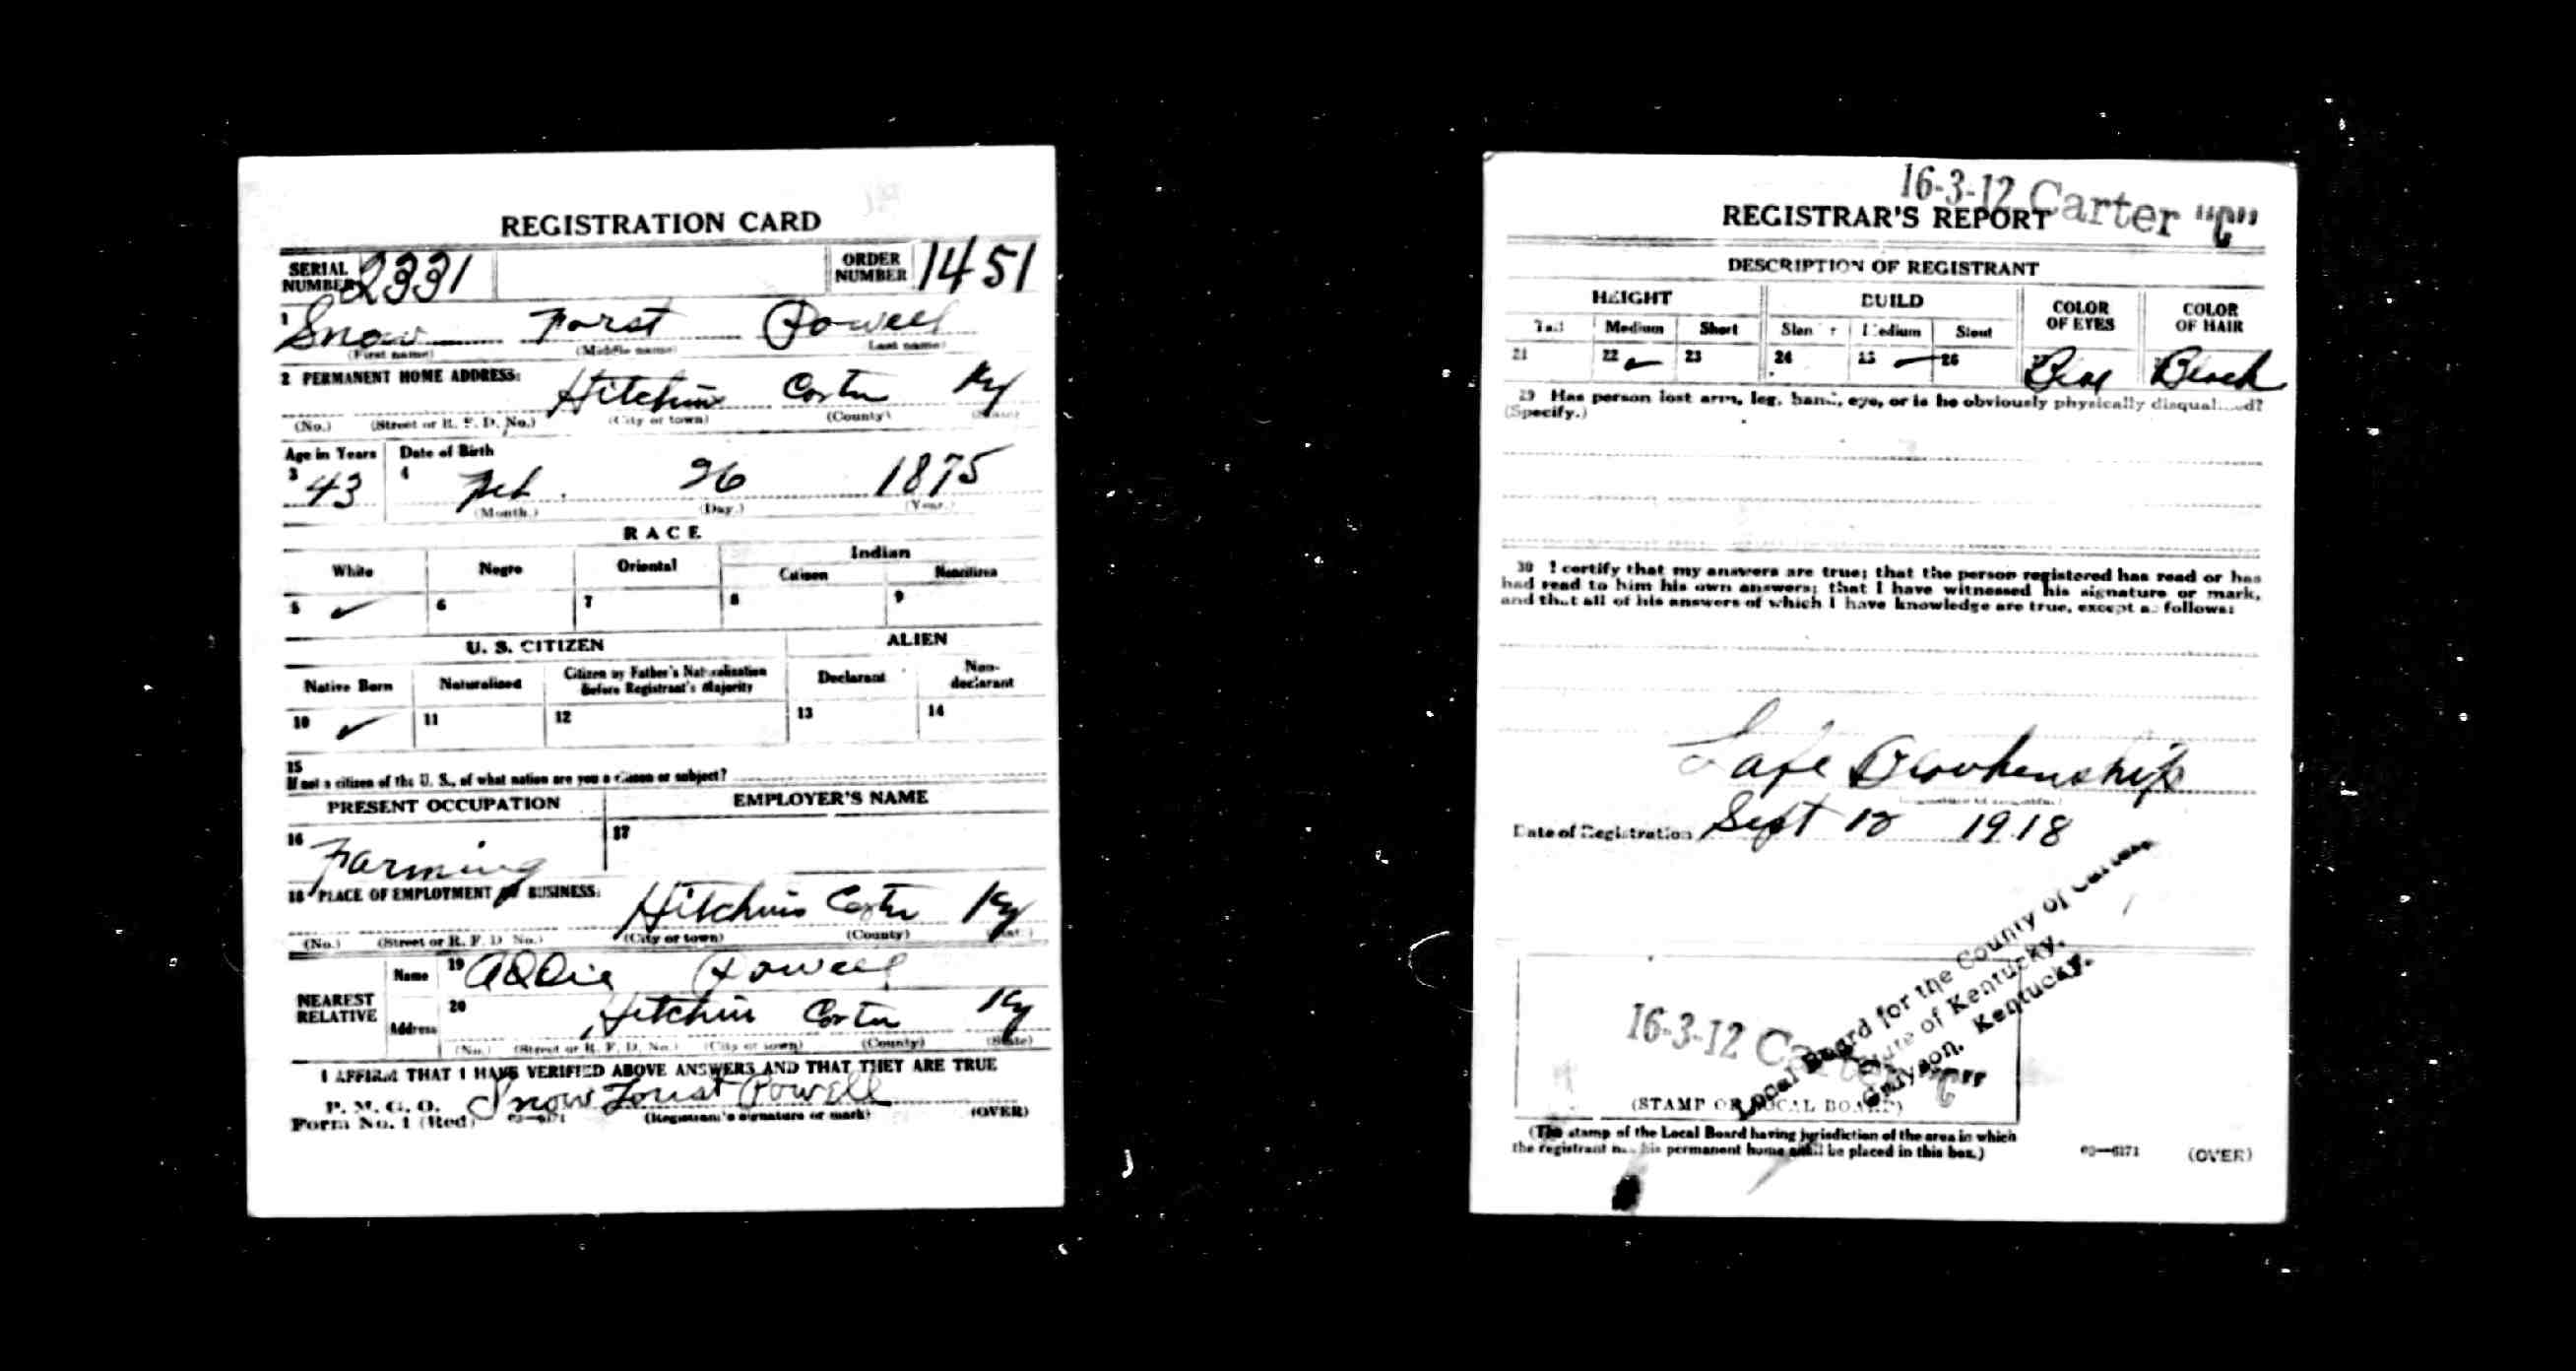 REGISTRATION CARD
SERIAL NUMBER 2331 ORDER NUMBER 1451
1 Snow Forst Powell
(First name) (Middle name) Last name)
2 PERMANENT HOME ADDRESS: Hitchins Carter Ky
(No.) (Street or R. F. D. No.) (City or town) (County) (State)
Age in Years Date of Birth
3 43 4 Feb. 26 1875
(Month.) (Day.) (Year.)
RACE
White Negro Oriental Indian
Citizen Noncitizen
5 ✓ 6 7 8 9
U. S. CITIZEN ALIEN
Native Born Naturalized Citizen by Father's Naturalization Before Registrant's Majority Declarant Non-declarant
10 ✓ 11 12 13 14
15
If not a citizen of the U. S., of what nation are you a citizen or subject?
PRESENT OCCUPATION EMPLOYER'S NAME
16 Farming 17
18 PLACE OF EMPLOYMENT OR BUSINESS: Hitchins Carter Ky
(No.) (Street or R. F. D. No.) (City or town) (County) (State)
NEAREST RELATIVE Name 19 Addie Powell
Address 20 Hitchins Carter Ky
(No.) (Street or R. F. D. No.) (City or town) (County) (State)
I AFFIRM THAT I HAVE VERIFIED ABOVE ANSWERS AND THAT THEY ARE TRUE
P. M. G. O.
Form No. 1 (Red) 03—6171 Snow Forist Powell
(Registrant's signature or mark) (OVER)
16-3-12 Carter "C"
REGISTRAR'S REPORT
DESCRIPTION OF REGISTRANT
HEIGHT BUILD COLOR OF EYES COLOR OF HAIR
Tall Medium Short Slender Medium Stout
21 22 ✓ 23 24 25 26 Black
29 Has person lost arm, leg, hand, eye, or is he obviously physically disqualified?
(Specify.)
30 I certify that my answers are true; that the person registered has read or has
had read to him his own answers; that I have witnessed his signature or mark,
and that all of his answers of which I have knowledge are true, except as follows:
Lafe Blankenship
Date of Registration Sept 12 1918
Local Board for the County of Carter,
State of Kentucky.
Grayson, Kentucky.
16-3-12 Carter "C"
(STAMP OF LOCAL BOARD)
(The stamp of the Local Board having jurisdiction of the area in which
the registrant has his permanent home shall be placed in this box.)
03—6171 (OVER)